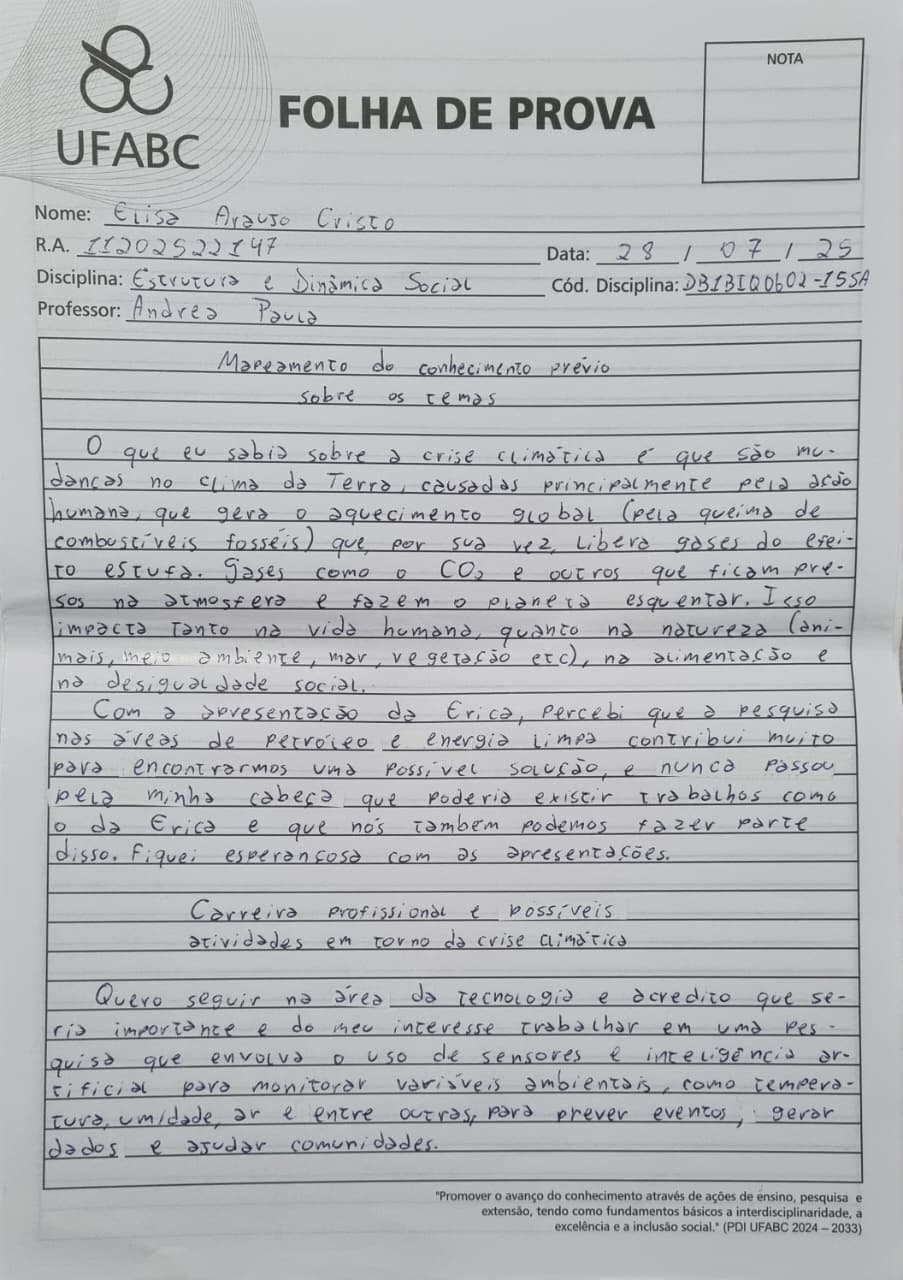 UFABC
FOLHA DE PROVA
NOTA
Nome: Elisa Araujo Cristo
R.A. 11202522147
Data: 28 / 07 / 25
Disciplina: Estrutura e Dinâmica Social
Cód. Disciplina: DB1BIQ0602-15SA
Professor: Andrea Paula
Mapeamento do conhecimento prévio
sobre os temas
O que eu sabia sobre a crise climática é que são mu-
danças no clima da Terra, causadas principalmente pela ação
humana, que gera o aquecimento global (pela queima de
combustíveis fosséis) que, por sua vez, libera gases do efei-
to estufa. Gases como o CO₂ e outros que ficam pre-
sos na atmosfera e fazem o planeta esquentar. Isso
impacta tanto na vida humana, quanto na natureza (ani-
mais, meio ambiente, mar, vegetação etc), na alimentação e
na desigualdade social.
Com a apresentação da Erica, percebi que a pesquisa
nas áreas de petróleo e energia limpa contribui muito
para encontrarmos uma possível solução, e nunca passou
pela minha cabeça que poderia existir trabalhos como
o da Erica e que nós também podemos fazer parte
disso. Fiquei esperançosa com as apresentações.
Carreira profissional e possíveis
atividades em torno da crise climática
Quero seguir na área da tecnologia e acredito que se-
ria importante e do meu interesse trabalhar em uma pes-
quisa que envolva o uso de sensores e inteligência ar-
tificial para monitorar variáveis ambientais, como tempera-
tura, umidade, ar e entre outras, para prever eventos, gerar
dados e ajudar comunidades.
"Promover o avanço do conhecimento através de ações de ensino, pesquisa e
extensão, tendo como fundamentos básicos a interdisciplinaridade, a
excelência e a inclusão social." (PDI UFABC 2024 – 2033)